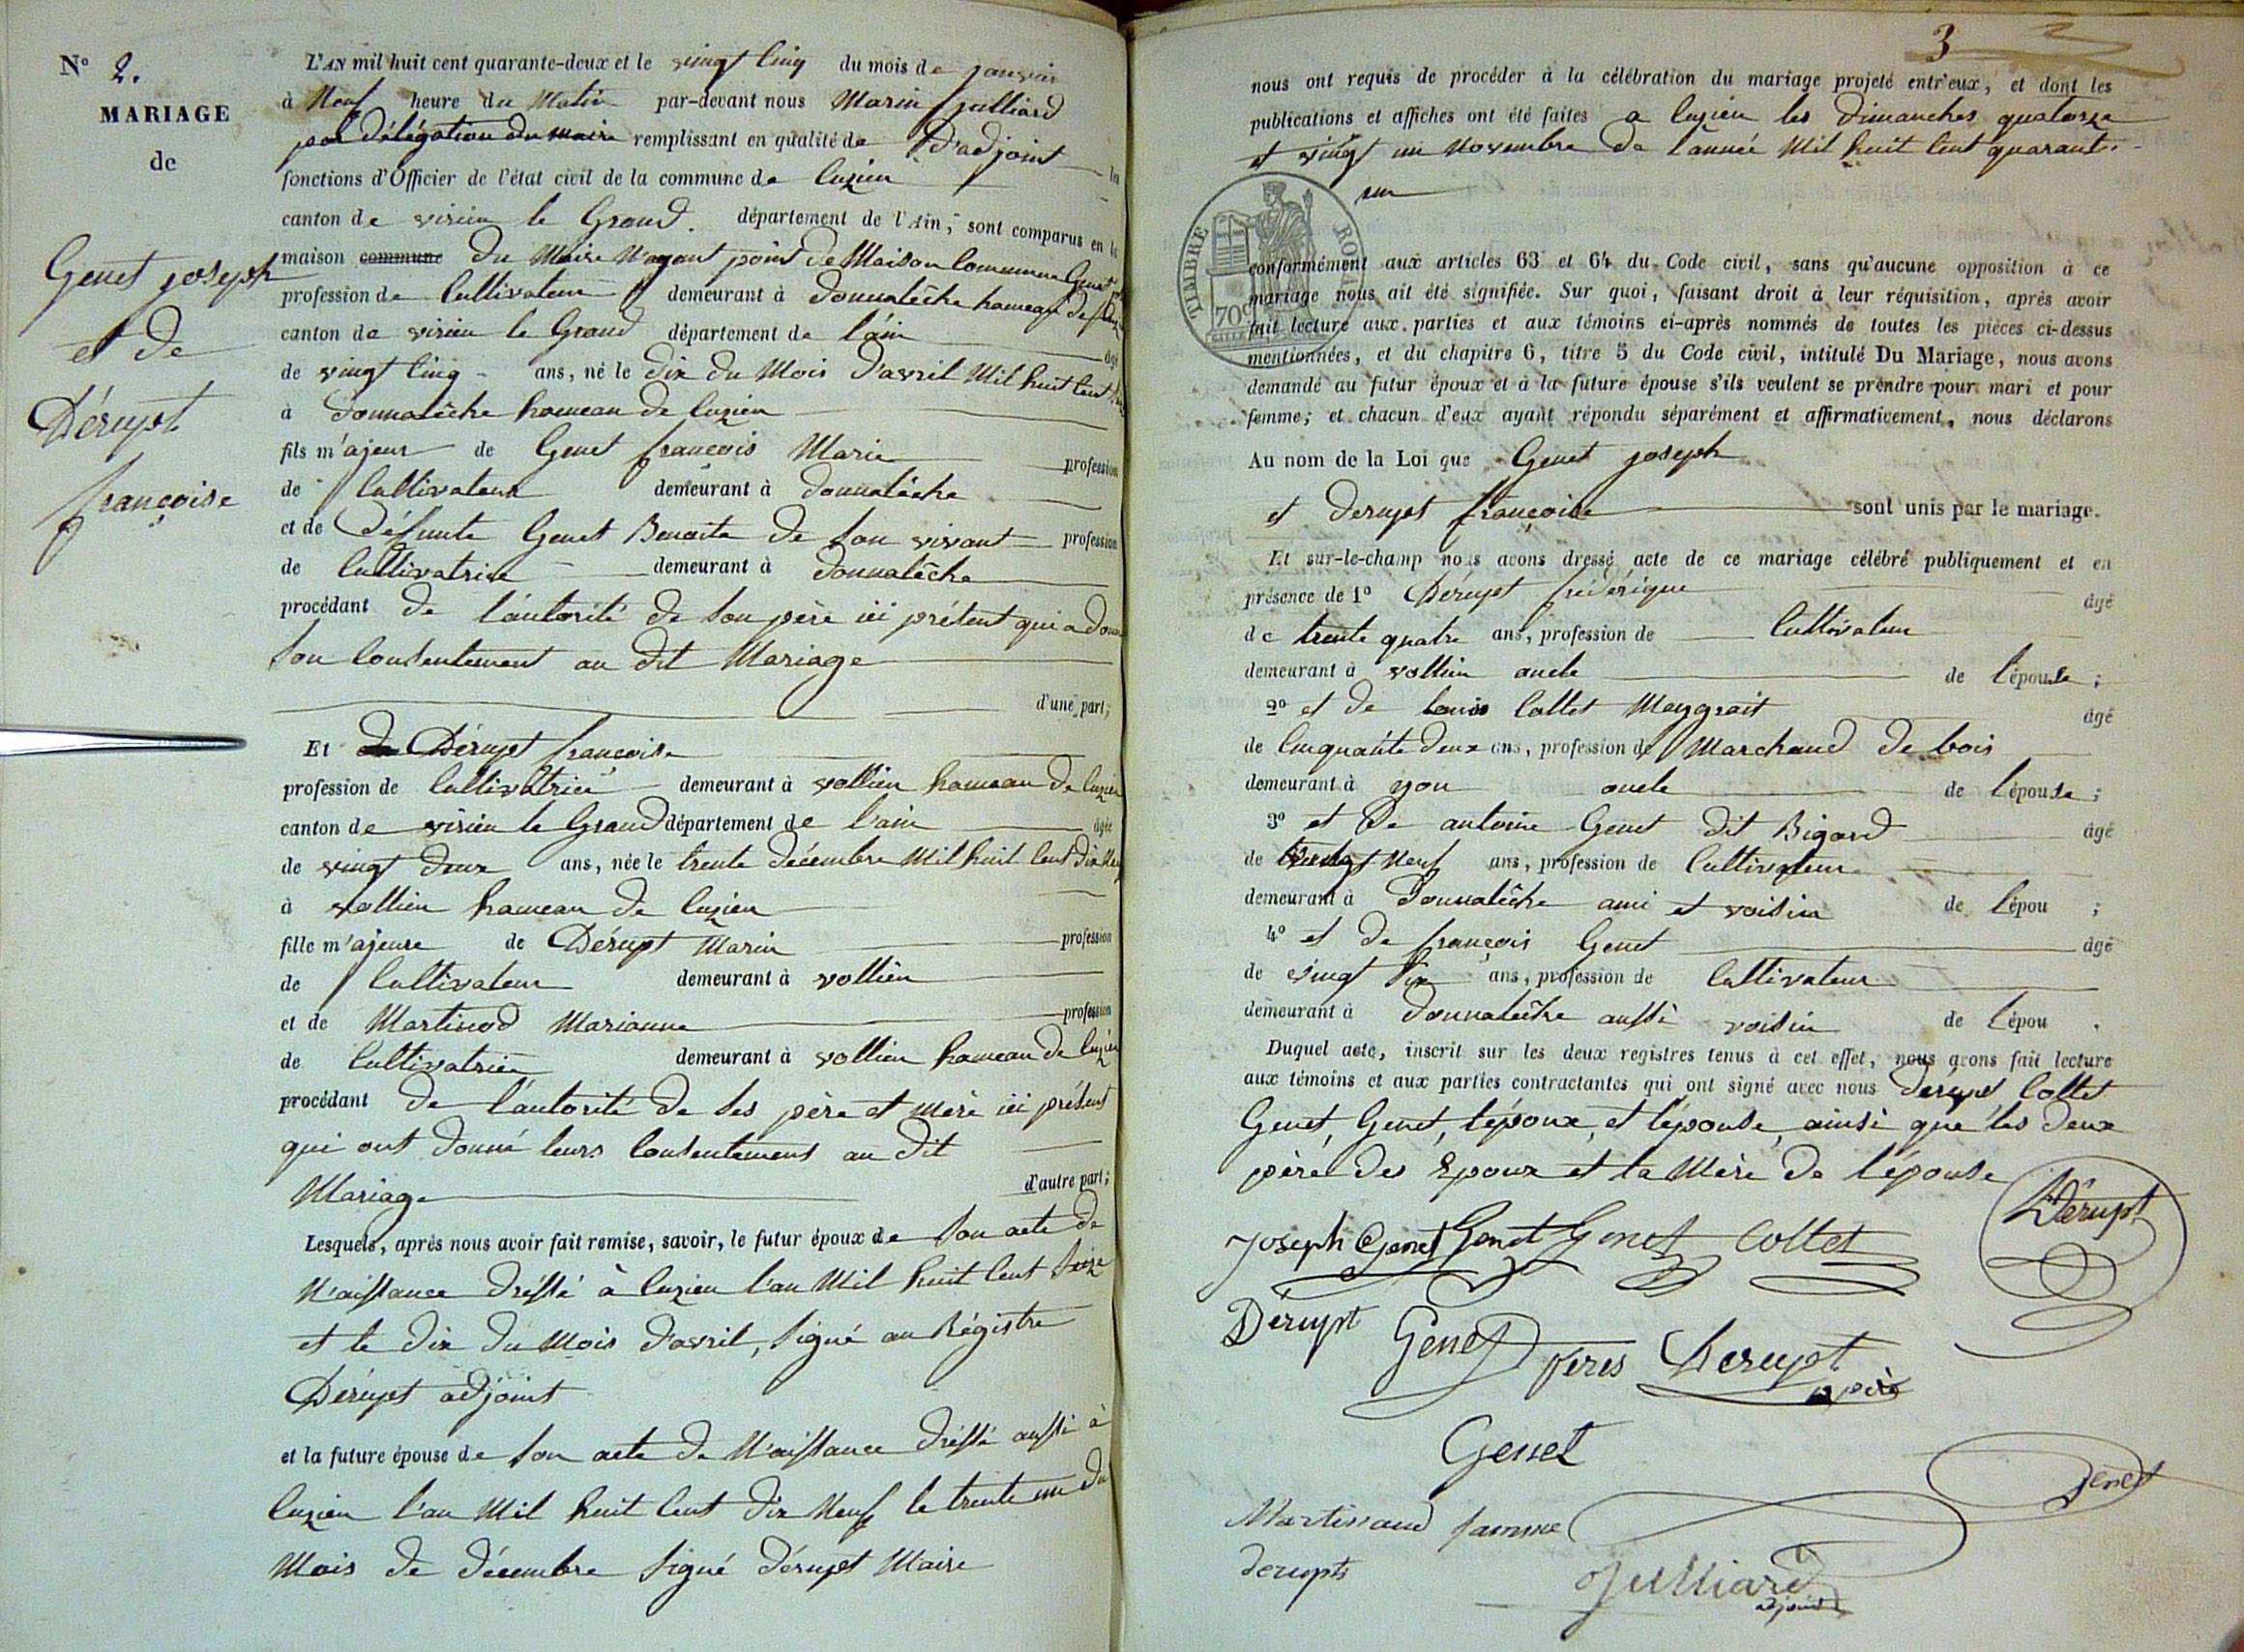 N° 2.
MARIAGE
de
Genet joseph
et de
Dérupt
françoise
L'AN mil huit cent quarante-deux et le vingt cinq du mois de janvier
à Neuf heure du Matin par-devant nous Marin julliard
par délégation du maire remplissant en qualité de D'adjoint les
fonctions d'Officier de l'état civil de la commune de Cuzieu
canton de virieu le Grand. département de l'Ain, sont comparus en la
maison commune du Maire N'ayant point de Maison Commune Genet
profession de Cultivateur demeurant à donnalêche hameau de
canton de virieu le Grand département de l'ain âgé
de vingt cinq ans, né le dix du Mois d'avril Mil huit Cent
à donnalêche hameau de Cuzieu
fils m'ajeur de Genet françois Marie profession
de Cultivateur demeurant à donnalêche
et de défunte Genet Benoite de son vivant profession
de Cultivatrice demeurant à donnalêche
procédant de l'autorité de son père ici présent qui a donné
son Consentement au dit Mariage
d'une part;
Et Dérupt françoise
profession de Cultivatrice demeurant à vollien hameau de Cuzieu
canton de virieu le Grand département de l'ain âgée
de vingt deux ans, née le trente décembre Mil huit Cent dix Neuf
à vollien hameau de Cuzieu
fille m'ajeure de Dérupt Marin profession
de Cultivateur demeurant à vollien
et de Martinod Marianne profession
de Cultivatrice demeurant à vollien hameau de Cuzieu
procédant de l'autorité de ses père et mère ici présent
qui ont donné leurs Consentement au dit
Mariage d'autre part;
Lesquels, après nous avoir fait remise, savoir, le futur époux de son acte de
N'aissance dréssé à Cuzieu l'an Mil huit Cent seize
et le dix du Mois d'avril, signé au Régistre
Dérupt adjoint
et la future épouse de son acte de N'aissance dréssé aussi à
Cuzieu l'an Mil huit Cent dix Neuf le trente un du
Mois de décembre signé dérupt Maire
3
nous ont requis de procéder à la célébration du mariage projeté entr'eux, et dont les
publications et affiches ont été faites a Cuzieu les dimanches quatorze
et vingt un Novembre de l'année Mil huit Cent quarante
un
TIMBRE ROYAL
70c
conformément aux articles 63 et 64 du Code civil, sans qu'aucune opposition à ce
mariage nous ait été signifiée. Sur quoi, faisant droit à leur réquisition, après avoir
fait lecture aux parties et aux témoins ci-après nommés de toutes les pièces ci-dessus
mentionnées, et du chapitre 6, titre 5 du Code civil, intitulé Du Mariage, nous avons
demandé au futur époux et à la future épouse s'ils veulent se prendre pour mari et pour
femme; et chacun d'eux ayant répondu séparément et affirmativement, nous déclarons
Au nom de la Loi que Genet joseph
et derupt françoise sont unis par le mariage.
Et sur-le-champ nous avons dressé acte de ce mariage célébré publiquement et en
présence de 1° Dérupt frédérique âgé
de trente quatre ans, profession de Cultivateur
demeurant à vollien oncle de l'épouse;
2° et de Louis Collet Meygrait âgé
de Cinquante deux ans, profession de Marchand de bois
demeurant à yon oncle de l'épouse;
3° et de antoine Genet dit Bigard âgé
de Neuf ans, profession de Cultivateur
demeurant à Donnalêche ami et voisin de l'épou ;
4° et de françois Genet âgé
de vingt six ans, profession de Cultivateur
demeurant à donnalêche aussi voisin de l'épou .
Duquel acte, inscrit sur les deux registres tenus à cet effet, nous avons fait lecture
aux témoins et aux parties contractantes qui ont signé avec nous dérupt Collet
Genet, Genet, l'époux, et l'épouse, ainsi que les deux
père des Epoux et la Mère de l'épouse
Joseph Genet Genet Genet Collet Dérupt
Dérupt Genet Derupt
père
Genet
Genet
Martinaud famme
derupts
Julliard
adjoint